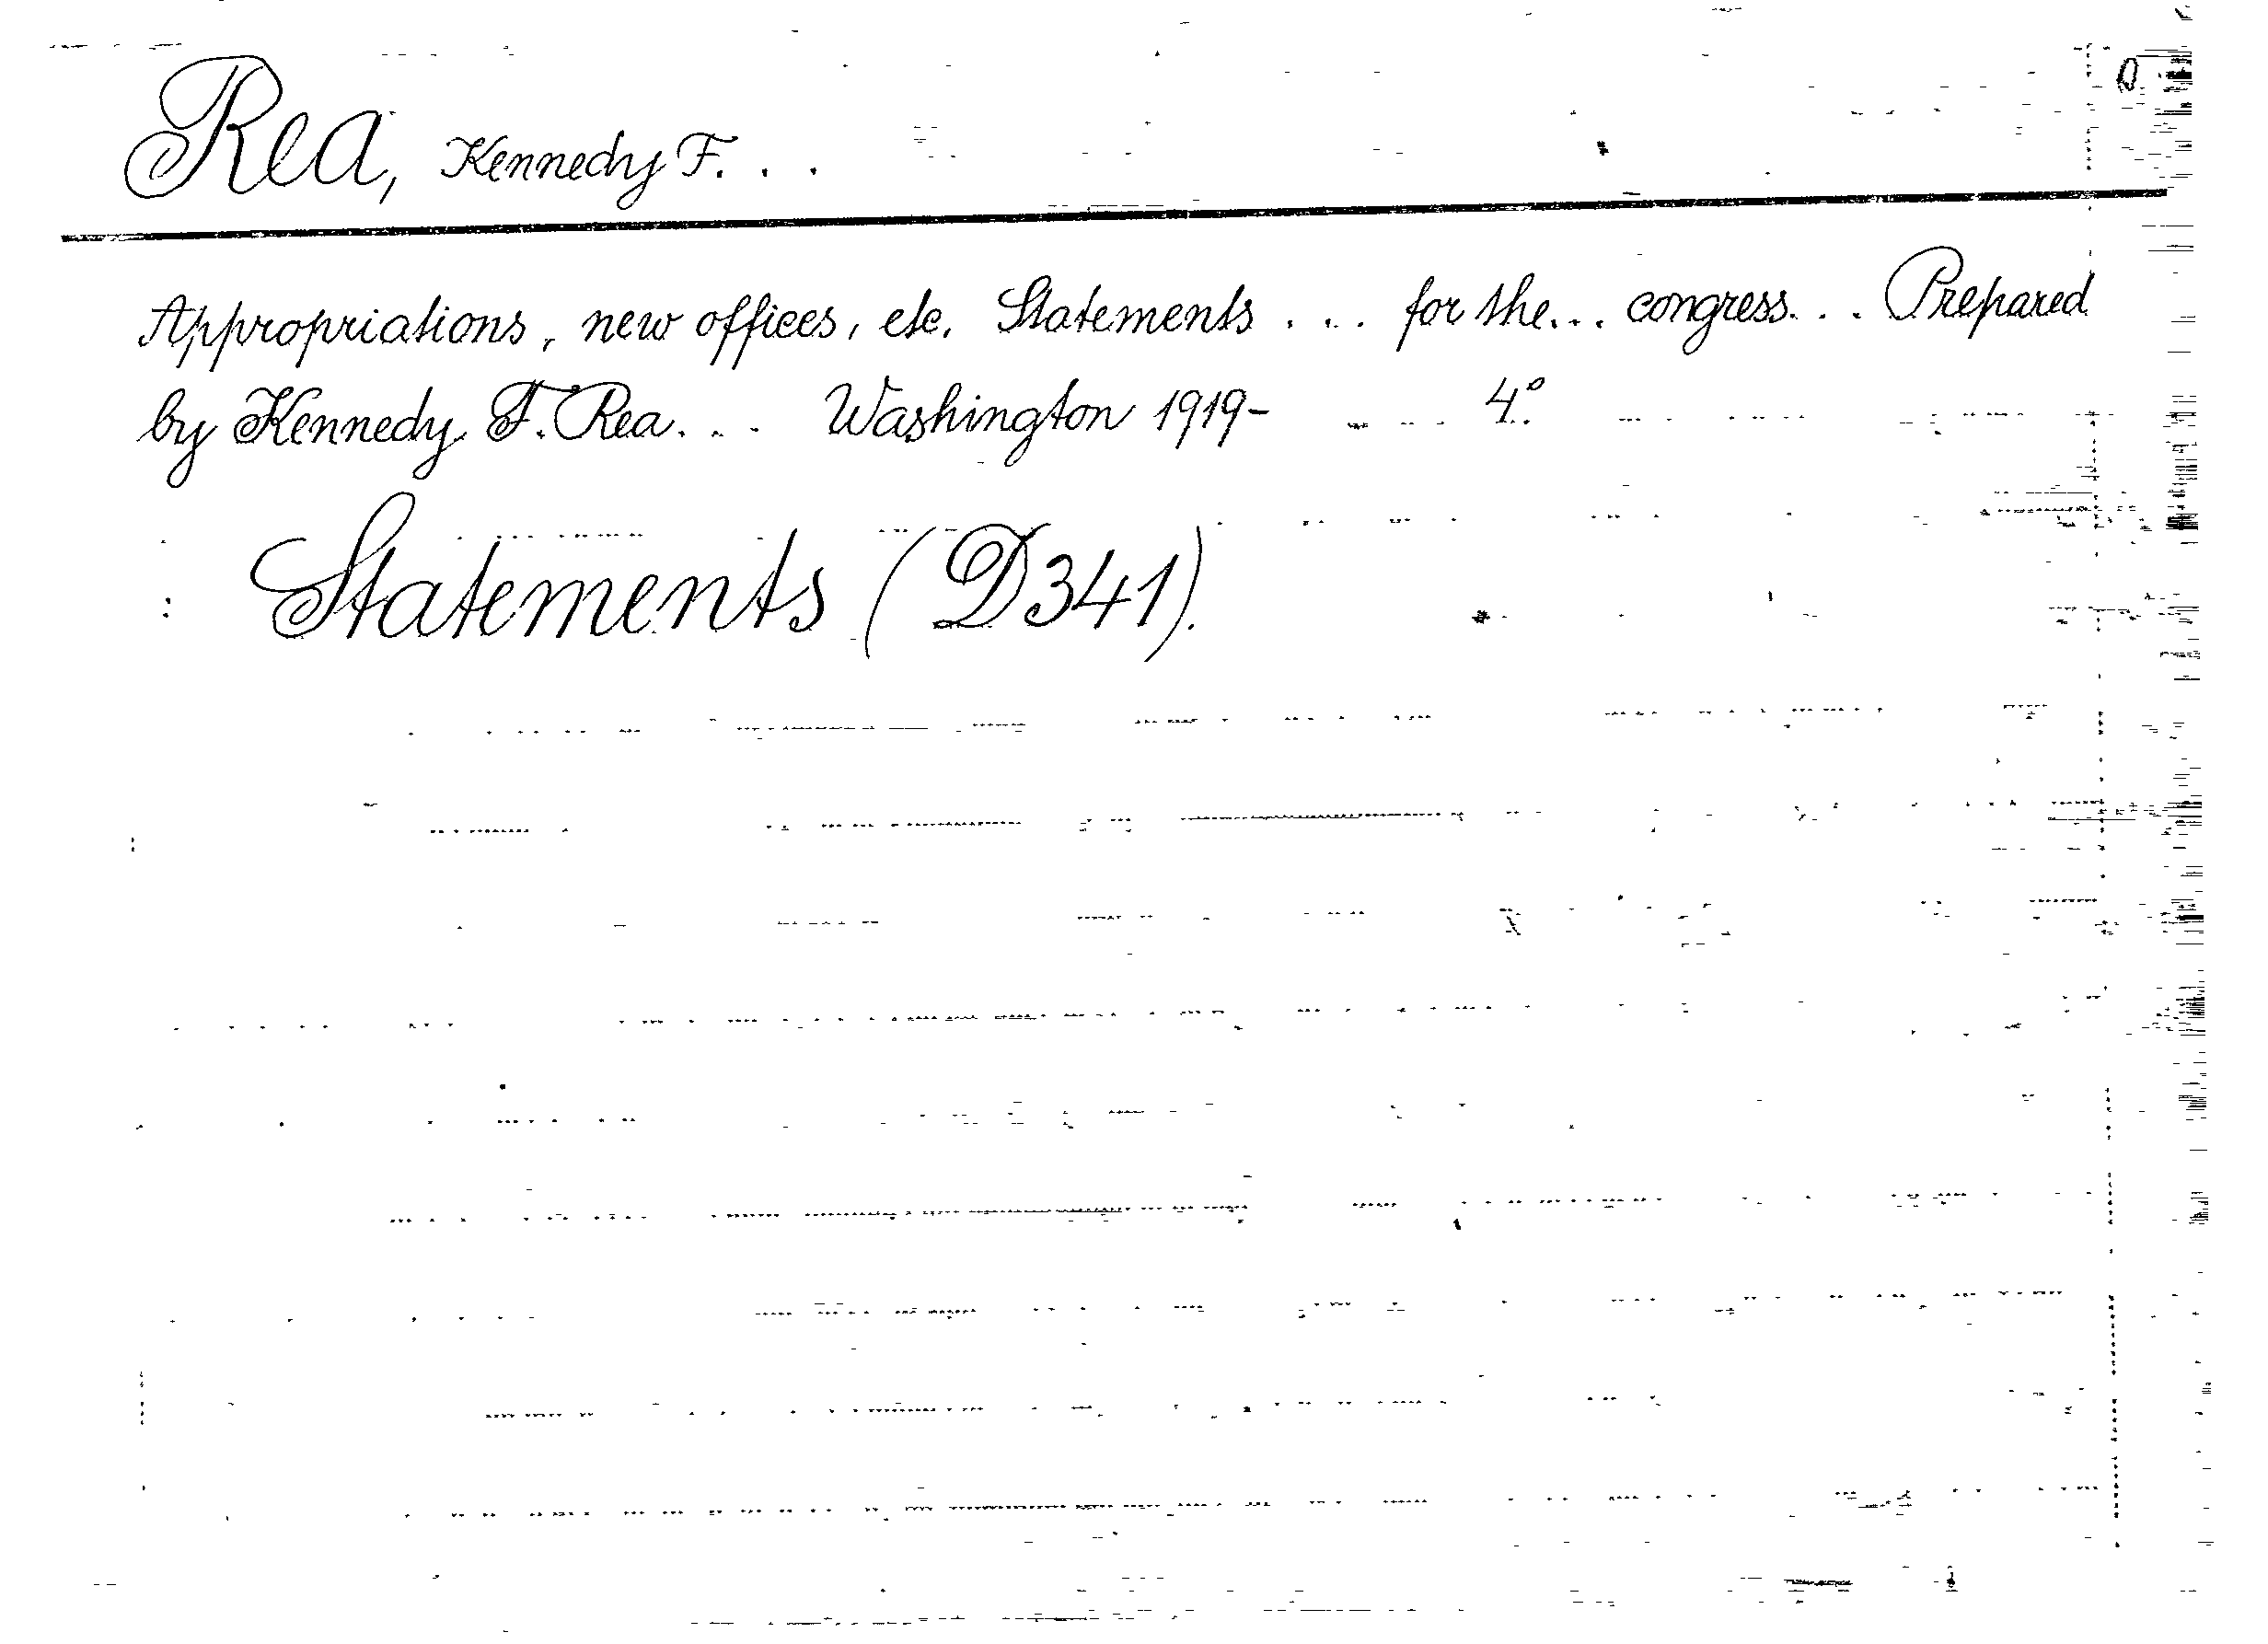 Rea, Kennedy F. . .
Appropriations, new offices, etc. Statements . . . for the... congress. . . Prepared
by Kennedy F. Rea. . . Washington 1919- 4°.
Statements (D341).